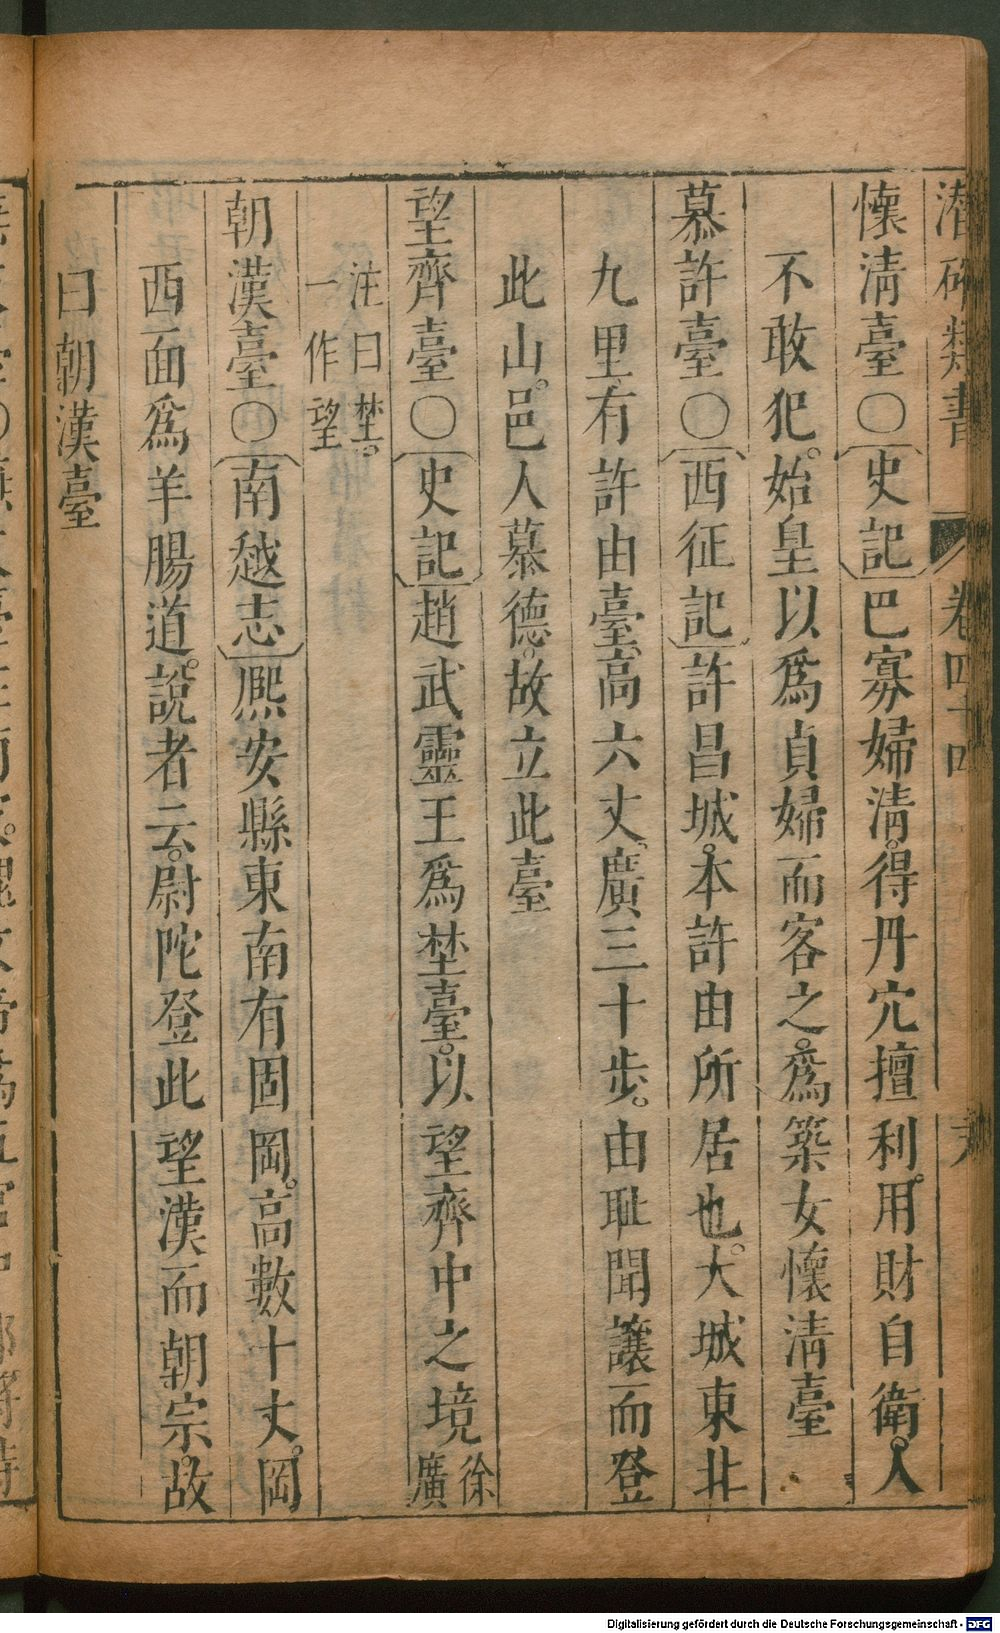 潛確類書 卷四十四
懷清臺〇〔史記〕巴寡婦清。得丹穴擅利。用財自衛。人
不敢犯。始皇以爲貞婦而客之。爲築女懷清臺
慕許臺〇〔西征記〕許昌城。本許由所居也。大城東北
九里有許由臺。高六丈廣三十步。由耻聞讓而登
此山。邑人慕德。故立此臺
望齊臺〇〔史記〕趙武靈王爲埜臺。以望齊中之境徐廣
注曰埜。一作望
朝漢臺〇〔南越志〕熈安縣東南有固岡。高數十丈。岡
西面爲羊腸道。說者云。尉陀登此望漢而朝宗。故
曰朝漢臺
Digitalisierung gefördert durch die Deutsche Forschungsgemeinschaft - DFG